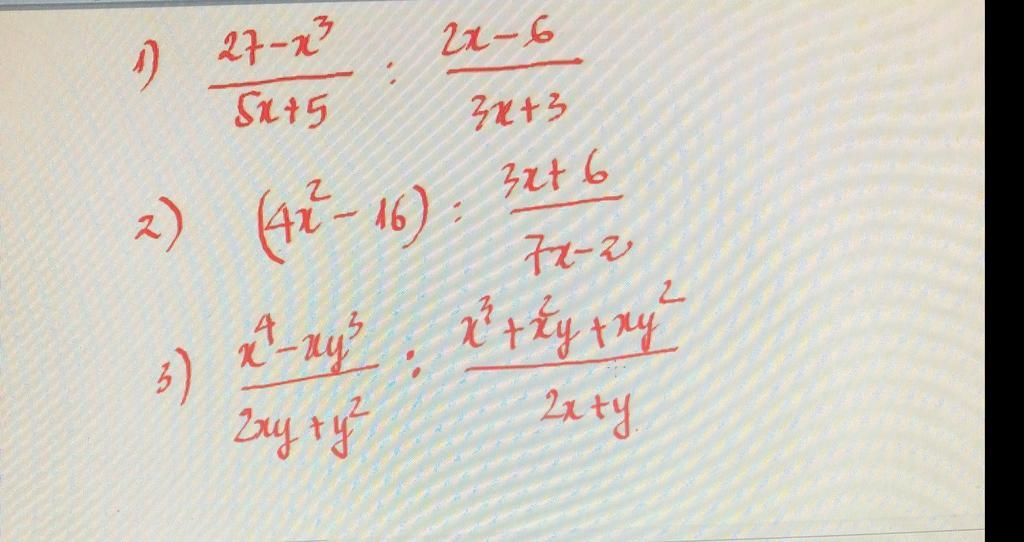 1) (27-x³)/(5x+5) : (2x-6)/(3x+3)
2) (4x²-16) : (3x+6)/(7x-2)
3) (x⁴-xy³)/(2xy+y²) : (x³+x²y+xy²)/(2x+y)